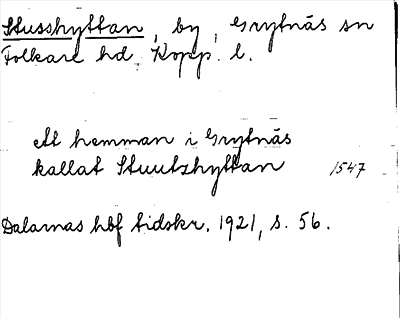 Stusshyttan, by, Grytnäs sn
Folkare hd. Kopp. l.
ett hemman i Grytnäs
kallat Stuutzhyttan 1547
Dalarnas hbf tidskr. 1921, s. 56.